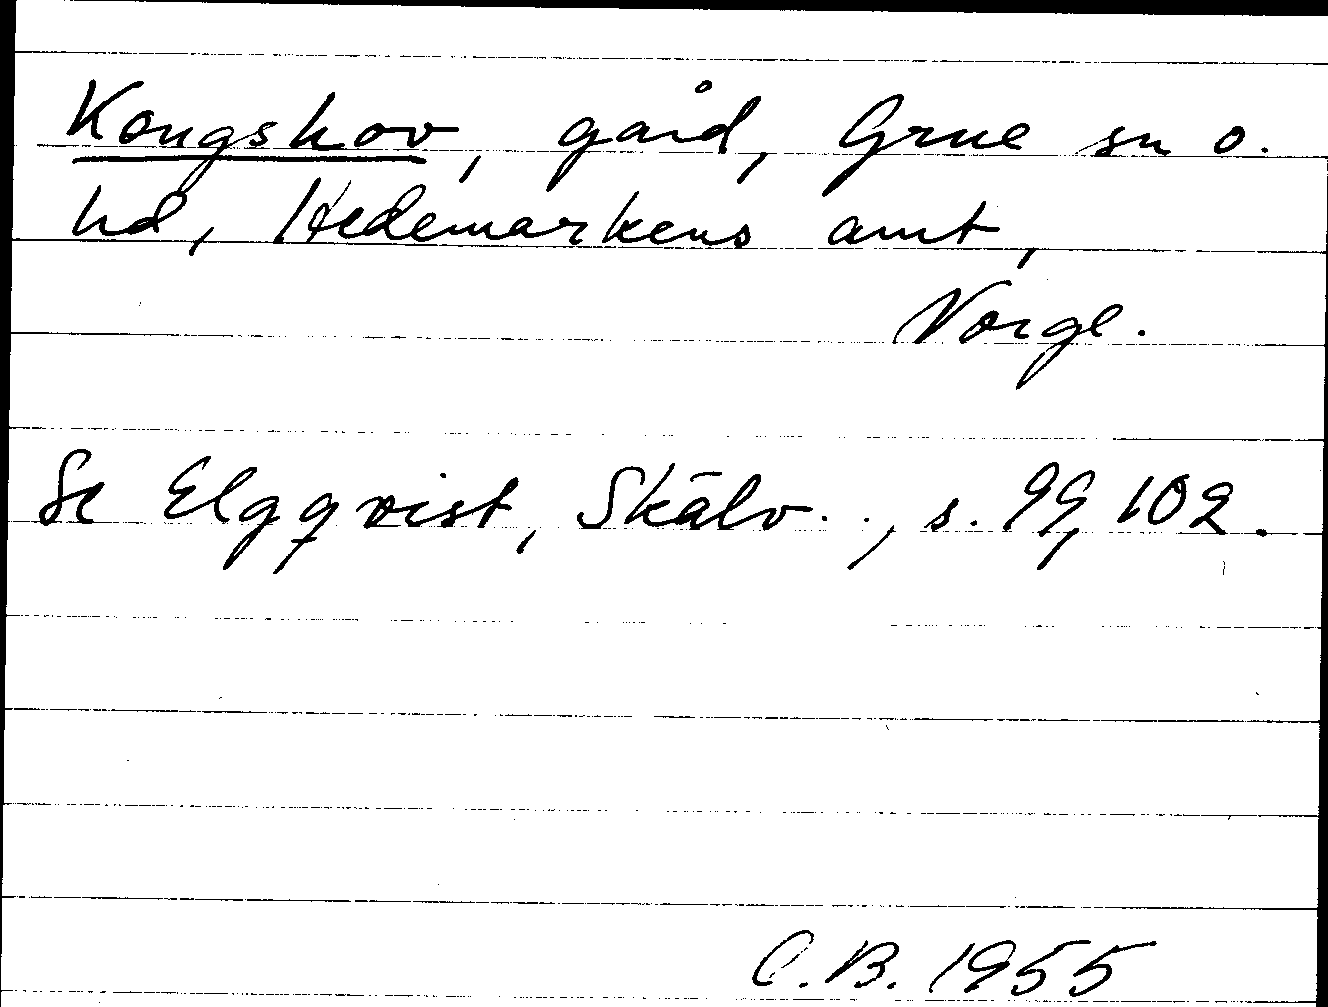 Kongshov, gård, Grue sn o.
hd, Hedemarkens amt,
Norge.
Se Elgqvist, Skälv.., s. 99, 102.
C.B. 1955